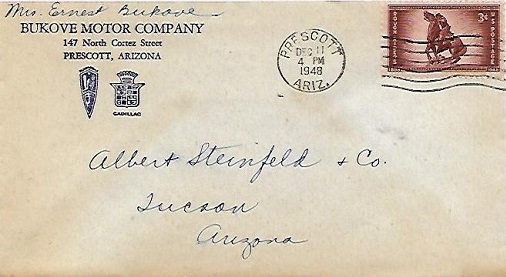 Mrs. Ernest Bukove
BUKOVE MOTOR COMPANY
147 North Cortez Street
PRESCOTT, ARIZONA
CADILLAC
PRESCOTT
DEC 11
4 PM
1948
ARIZ.
3¢
U.S. POSTAGE
Albert Steinfeld & Co.
Tucson
Arizona